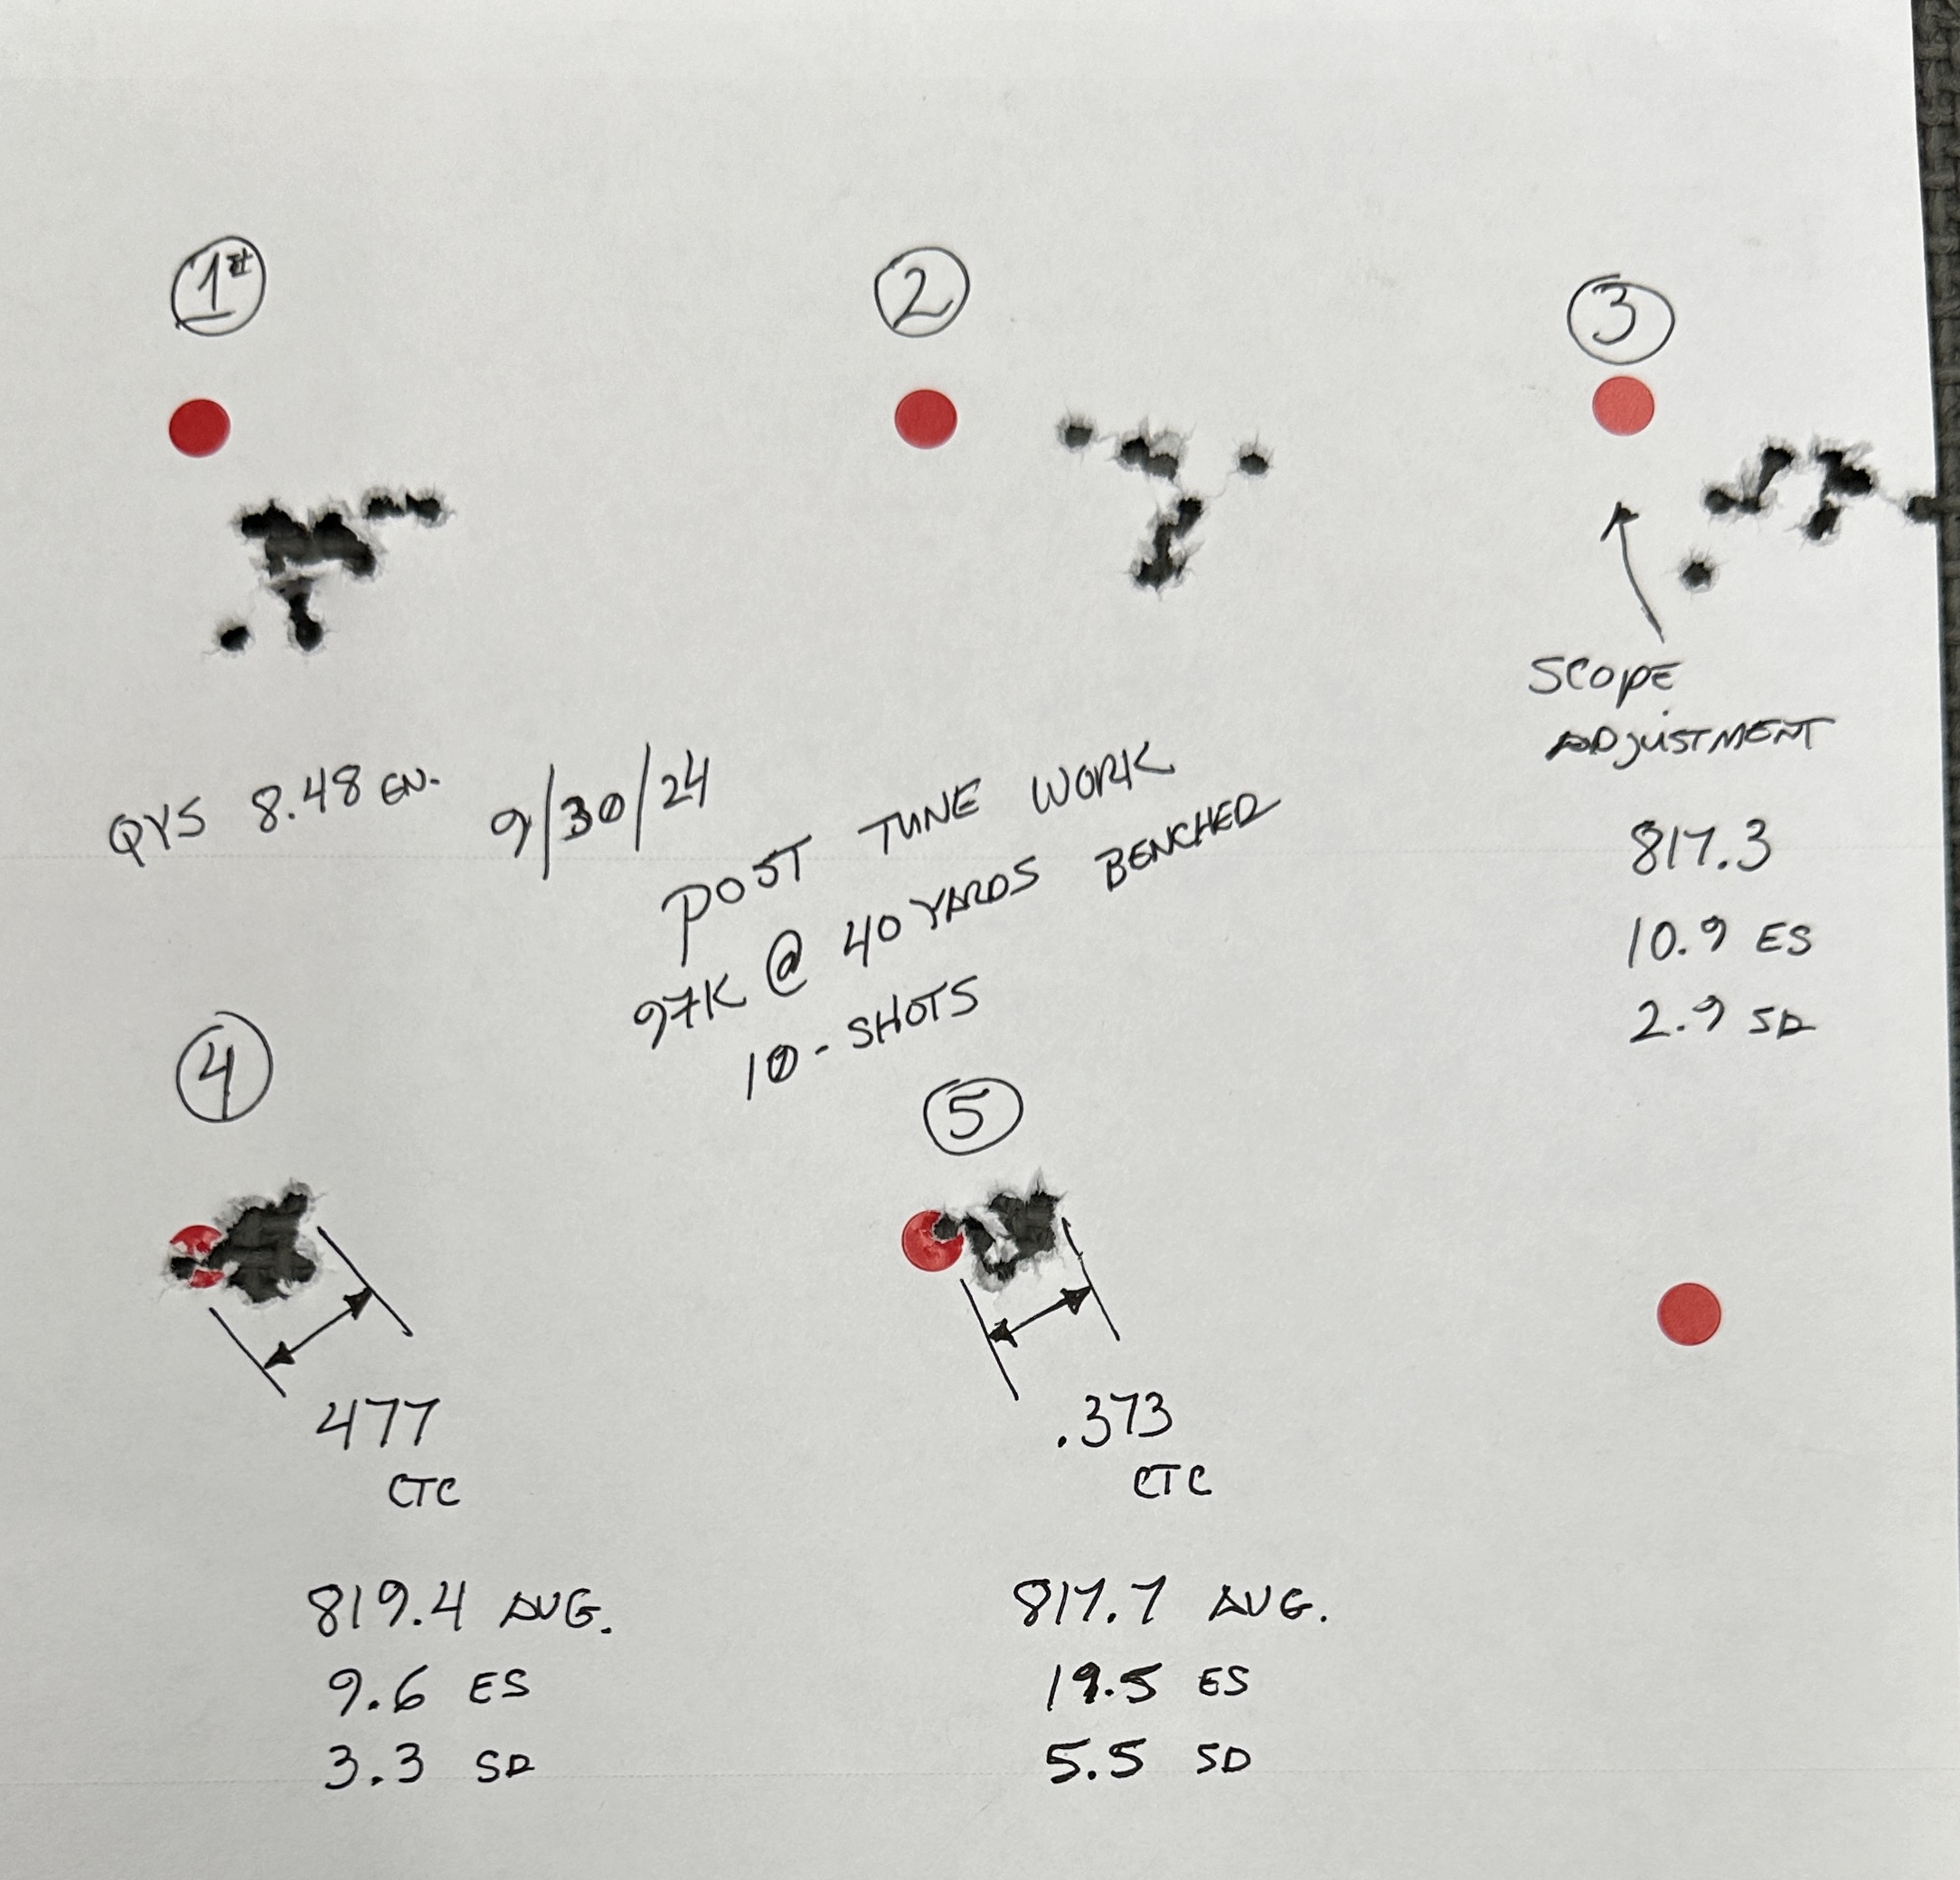 1st
2
3
SCOPE
ADJUSTMENT
817.3
10.9 ES
2.9 SD
QYS 8.48 GN.
9/30/24
POST TUNE WORK
97K @ 40 YARDS BENCHED
10-SHOTS
4
477
CTC
819.4 AVG.
9.6 ES
3.3 SD
5
.373
CTC
817.7 AVG.
19.5 ES
5.5 SD